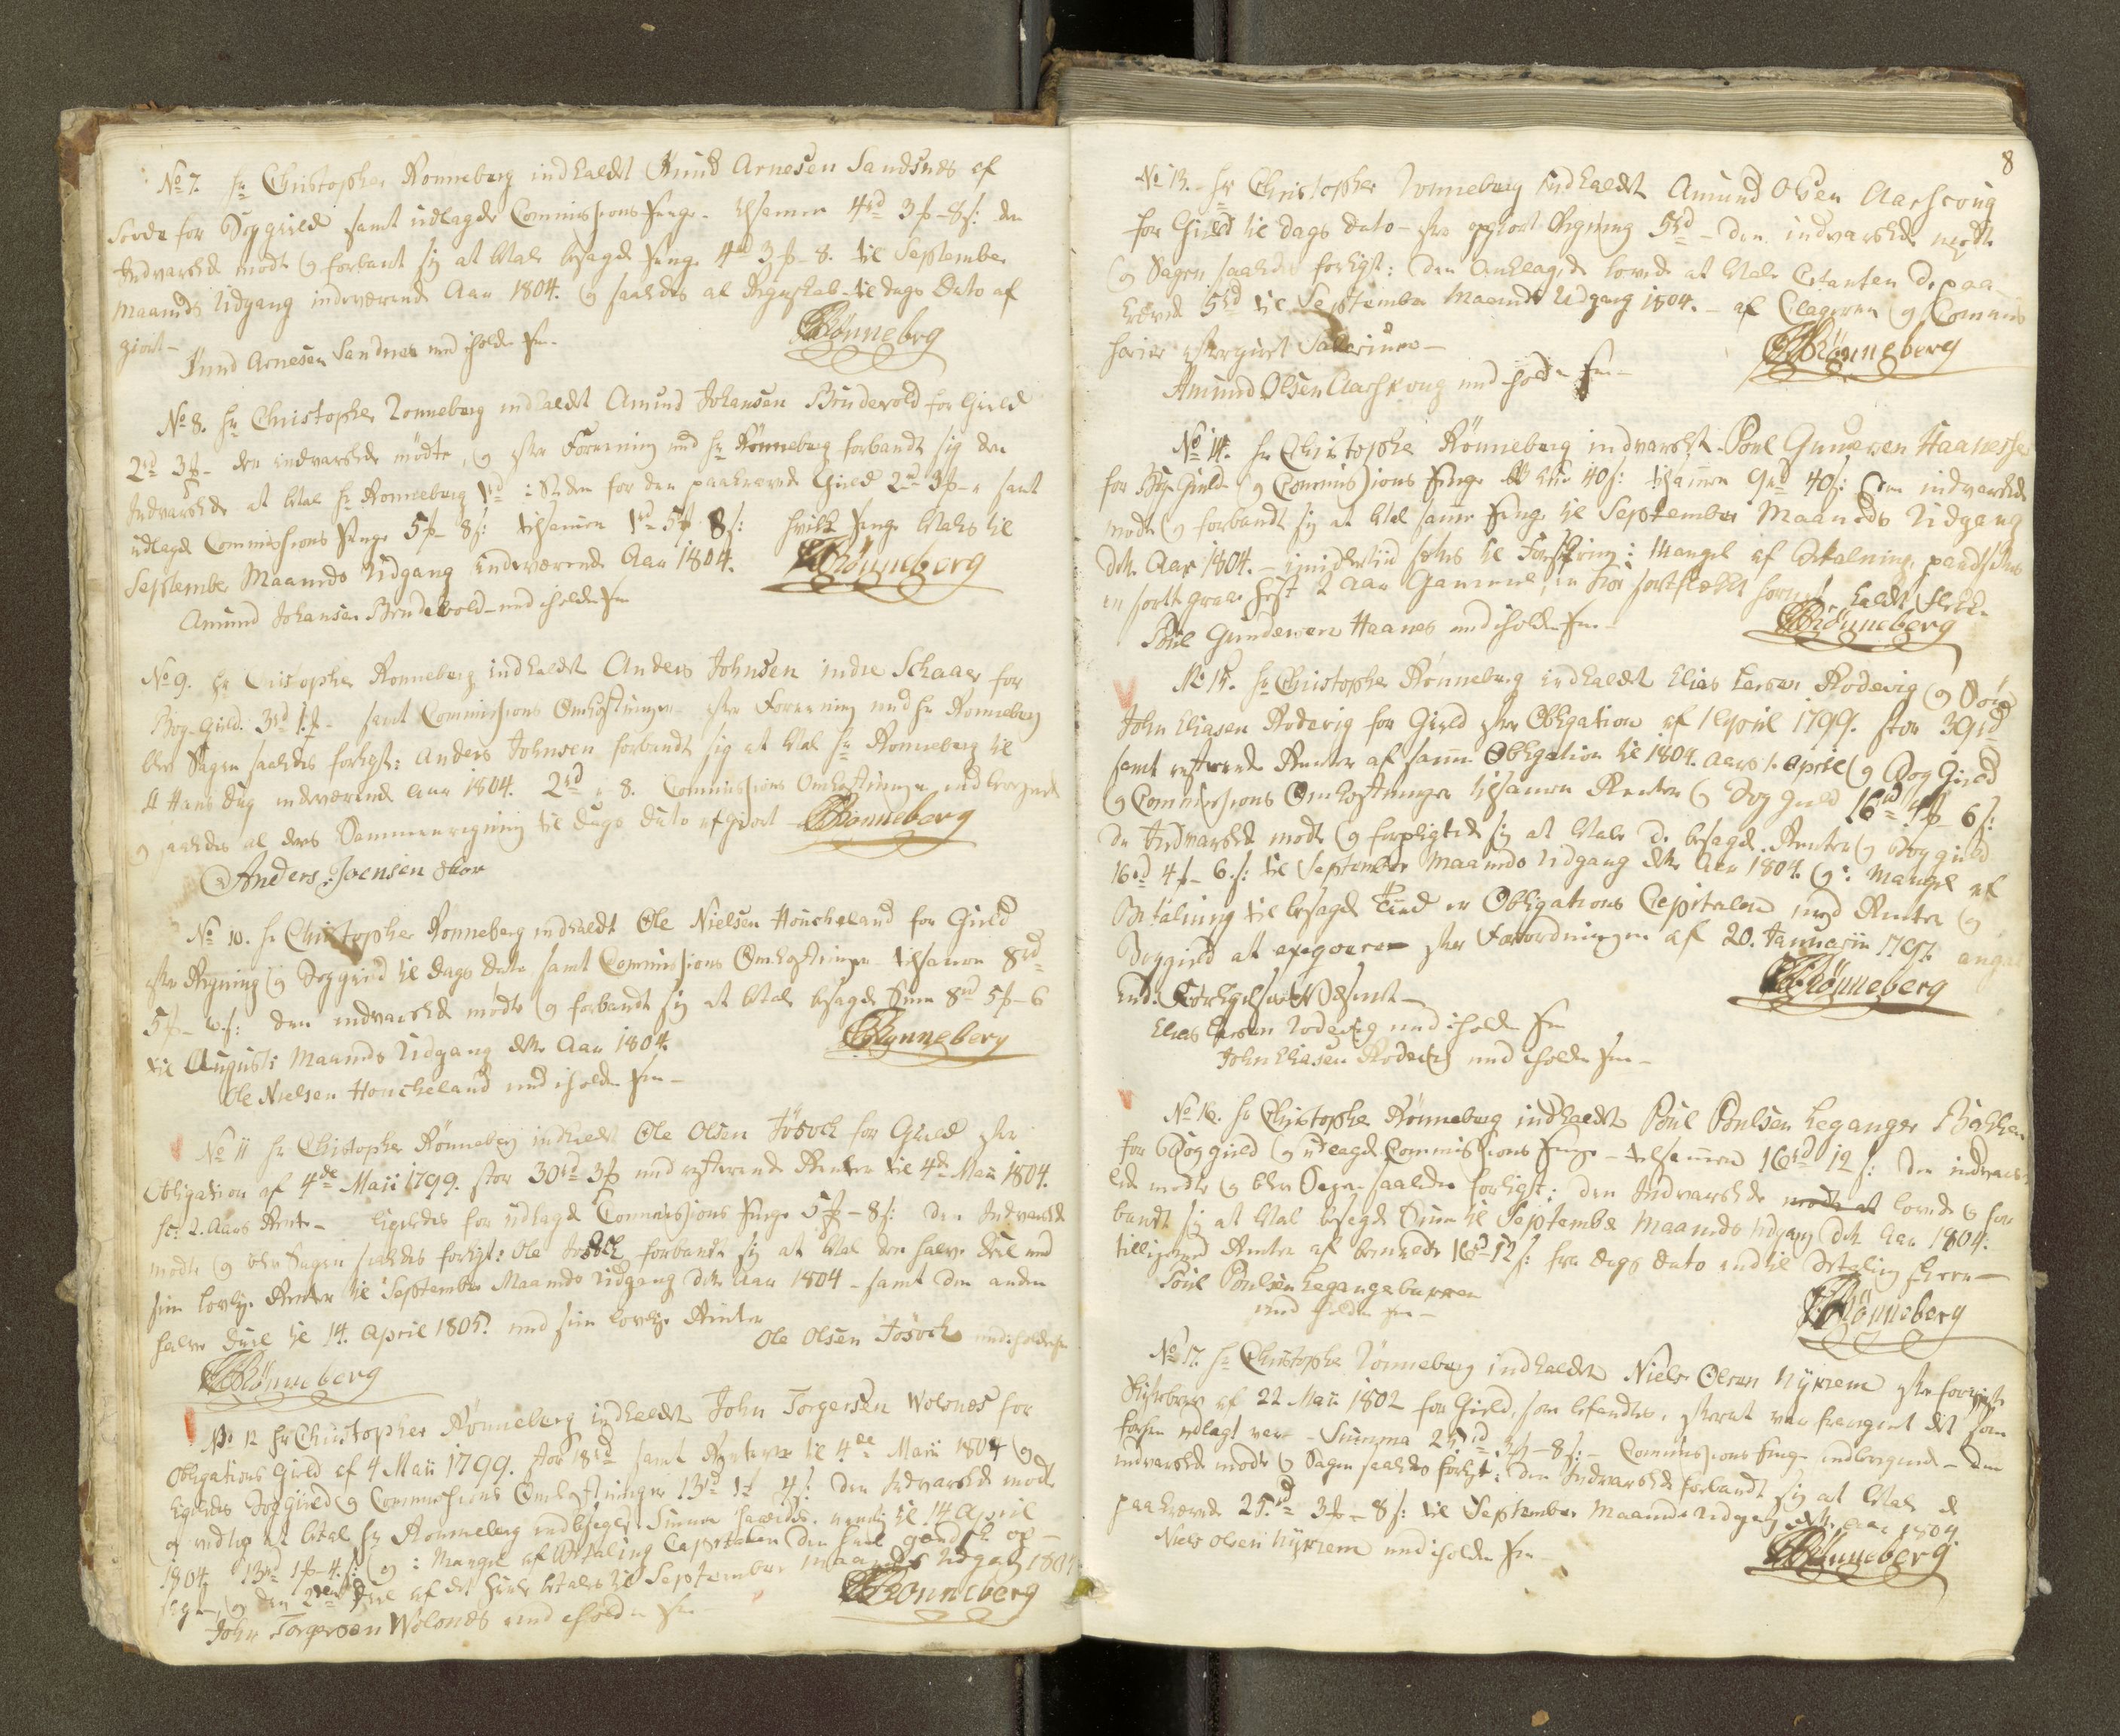 No 7. Hr Christopher Ronneberg indkaldt Knud Arnesen Sandsnes af
for Bøggield samt udlagde Commissions Penge tilsamen 4rd 3 - 8 s: den
Indvarslede mødte og forbandt sig at betale besagde Penge 4rd 3 - 8. til September
Maaneds Udgang indeværende Aar 1804. og saaledes al Regnskab til dags Dato af
giort -
Knud Arnesen Sandnes med iholden Pen
CRönneberg
No 8. Hr Christopher Ronneberg indkaldt Amund Johansen Brudevold for Gield
2rd 3 - den indvarslede mödte, og efter Forening med Hr Rönneberg forbandt sig den
Indvarslede at betale Hr Ronneberg 1rd i Steden for den paakrævede Gield 2rd 3 - samt
udlagde Commissions Penge 5 - 8 s: tilsamen 1rd 5 8 s: hvilke Penge betales til
September Maaneds Udgang indeværende Aar 1804.
CRönneberg
Amund Johansen Brudevold med iholden Pen
No 9. Hr Cristopher Ronneberg indkaldt Anders Johnsen indre Schaar for
Bog-Gield 3rd 1 - samt Commissions Omkostninger efter Forening med Hr Ronneberg
blev Sagen saaledes forligt: Anders Johnsen forbandt sig at betale Hr Ronneberg til
St Hans dag indeværende Aar 1804. 2rd " 8. Commissions Omkostninger indberegnede
og saaledes al deres Sammenregning til dags dato afgiort
CRönneberg
Anders Joensen skor
No 10. Hr Christopher Ronneberg indkaldt Ole Nielsen Houcheland for Gield
efter Regning og Boggield til dags dato samt Commissions Omkostninger tilsamen 8rd
5 - 6 s: den indvarslede mødte og forbandt sig at betale besagde Sum 8rd 5 - 6
til Augusti Maaneds Udgang dette Aar 1804.
CRönneberg
Ole Nielsen Houcheland med iholden Pen -
No 11 Hr Christopher Rönneberg indkaldt Ole Olsen Jösoch for Gield efter
Obligation af 4de Maii 1799. stor 30rd 3 med resterende Renter til 4de Maii 1804.
2. Aars Rente - ligeledes for udlagde Commissions Penge 5 - 8 s: den Indvarslede
mødte og blev Sagen saaledes forligt: Ole Jösoch forbandt sig at betale den halve Deel med
sine lovlige Renter til September Maaneds Udgang dette Aar 1804 - samt den anden
halve Deel til 14. April 1805. med sine lovlige Renter
Ole Olsen Jösoch med iholden Pen
CRönneberg
No 12 Hr Christopher Rönneberg indkaldt John Torgersen Wolsnes for
Obligations Gield af 4 Maii 1799. stor 18rd samt Renterne til 4de Maii 1804 og
ligeledes Boggield og Commissions Omkostninger 13rd 1 4 s: den Indvarslede mødte
og vedtog at betale Hr Ronneberg til 14 April
1804 13rd 1 - 4 s: og i Mangel af Betaling Capitalen den heele op-
sagt, og den 2den Deel af det heele betales til September Maaneds Udgang 1804
CRönneberg
John Torgersen Wolsnes med iholden Pen
8
No 13. Hr Christopher Ronneberg indkaldt Amund Olsen Aarskoug
for Gield til dags dato - efter opgiort Regning 5rd - den indvarslede mødte
og Sagen saaledes forligt: den Anklagede lovede at betale Citanten de paa
krævede 5rd til September Maaneds Udgang 1804. - af Clageren og Commis
sarier eftergivet Salarium -
CRönneberg
Amund Olsen Aarskoug med iholden Pen -
No 14. Hr Christopher Rönneberg indvarslet Poul Gundersen Haanes
for Bog Gield og Commissions Penge 40 s: tilsamen 9rd 40 s: den indvarslede
mødte og forbandt sig at betale samme Penge til September Maaneds Udgang
dette Aar 1804. - imidlertiid settes til Forsikring i Mangel af Betaling, pandsettes
en sorte graae Hest 2 Aar Gammel, en Koe sortflekket kaldet
CRönneberg
Poul Gundersen Haanes med iholden Pen -
No 15. Hr Christopher Rönneberg indkaldt Elias Larsen Rodevig og Søn
John Eliasen Rodevig for Gield efter Obligation af 1 April 1799. stor 39rd
samt resterende Renter af samme Obligation til 1804. Aars 1. April og Bog Gield
og Commissions Omkostninger tilsamen Renter og Bog Gield 16rd 4 - 6 s:
de Indvarslede mødte og forpligtede sig at betale de besagde Renter og Boggield
16rd 4 - 6 s: til September Maaneds Udgang dette Aar 1804. og i Mangel af
Betalning til besagde Tiid er Obligations Capitalen med Renter og
Boggield at exeqvere efter Forordningen af 20. Januarii 1797. angaa
ende Forligelses Væsenet -
CRönneberg
Elias Larsen Rodevig med iholden Pen
John Eliasen Rodevig med iholden Pen -
No 16. Hr Christopher Rönneberg indkaldt Poul Poulsen Leganger Bakken
for Boggield og udlagde Commissions Penge - tilsammen 16rd 12 s: den indvars
lede mødte og blev Sagen saaledes forligt: den Indvarslede mødte at lovede og for
bandt sig at betale besagde Sum til September Maaneds Udgang dette Aar 1804.
tilligemed Renter af bemældte 16rd 12 s: fra dags dato indtil Betaling skeer -
Poul Poulsen Legangebakken
med iholden Pen -
CRönneberg
No 17. Hr Christopher Rönneberg indkaldt Niels Olsen Myrem efter forrige
af 22 Maii 1802 for Gield, som befandtes, efterat var fragaaet det som
forhen erlagt var - Summa 25rd 3 - 8 s: - Commissions Penge indberegnede - den
indvarslede mødte og Sagen saaledes forligt: den Indvarslede forbandt sig at betale de
paakrævede 25rd 3 - 8 s: til September Maaneds Udgang dette Aar 1804.
CRönneberg
Niels Olsen Myrem med iholden Pen